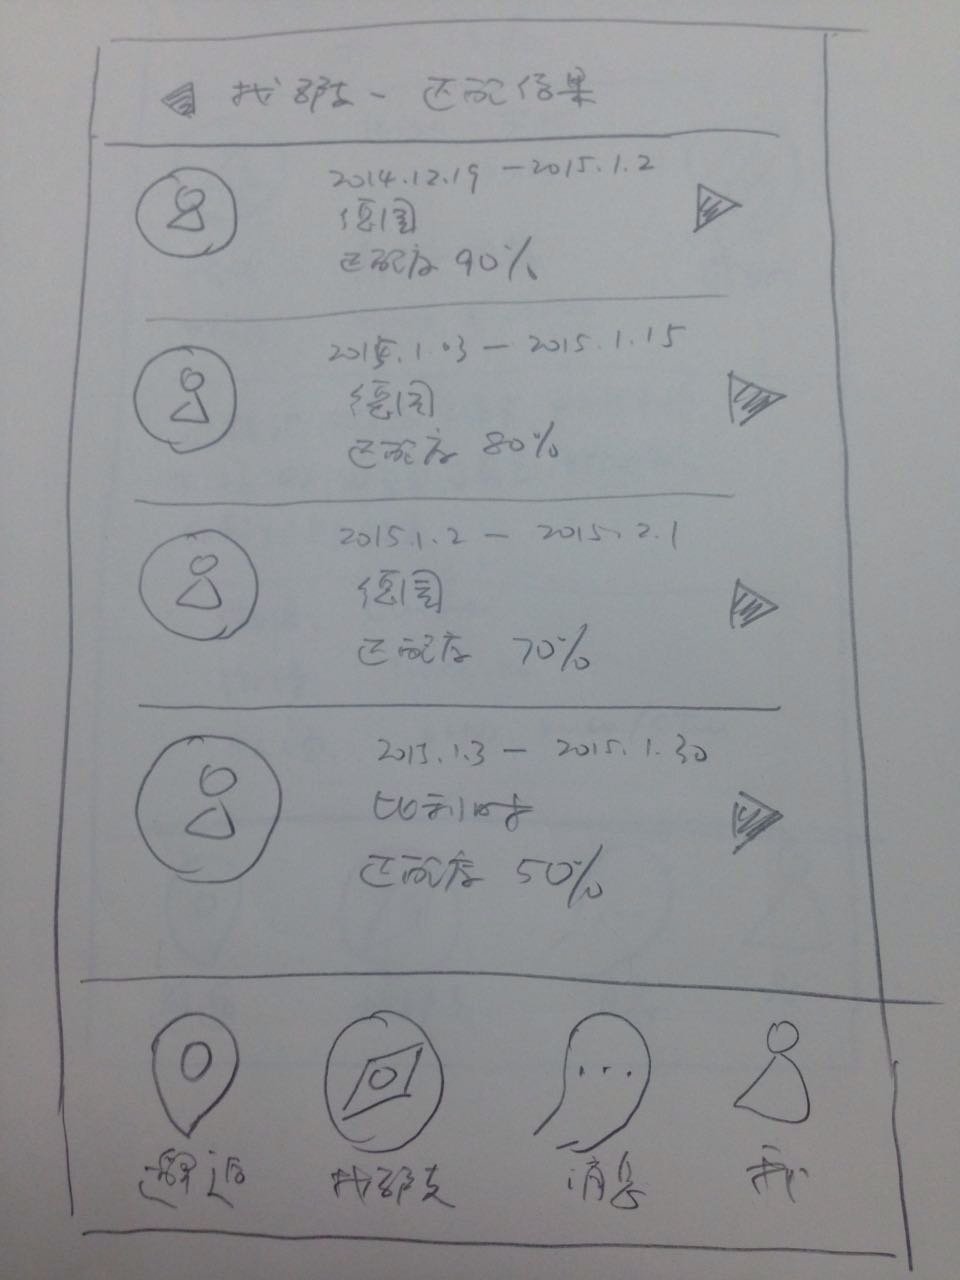 找部友-匹配结果
2014.12.19-2015.1.2
德国
匹配度 90%
2015.1.03-2015.1.15
德国
匹配度 80%
2015.1.2-2015.2.1
德国
匹配度 70%
2015.1.3-2015.1.30
比利时
匹配度 50%
邂逅
找部友
消息
我